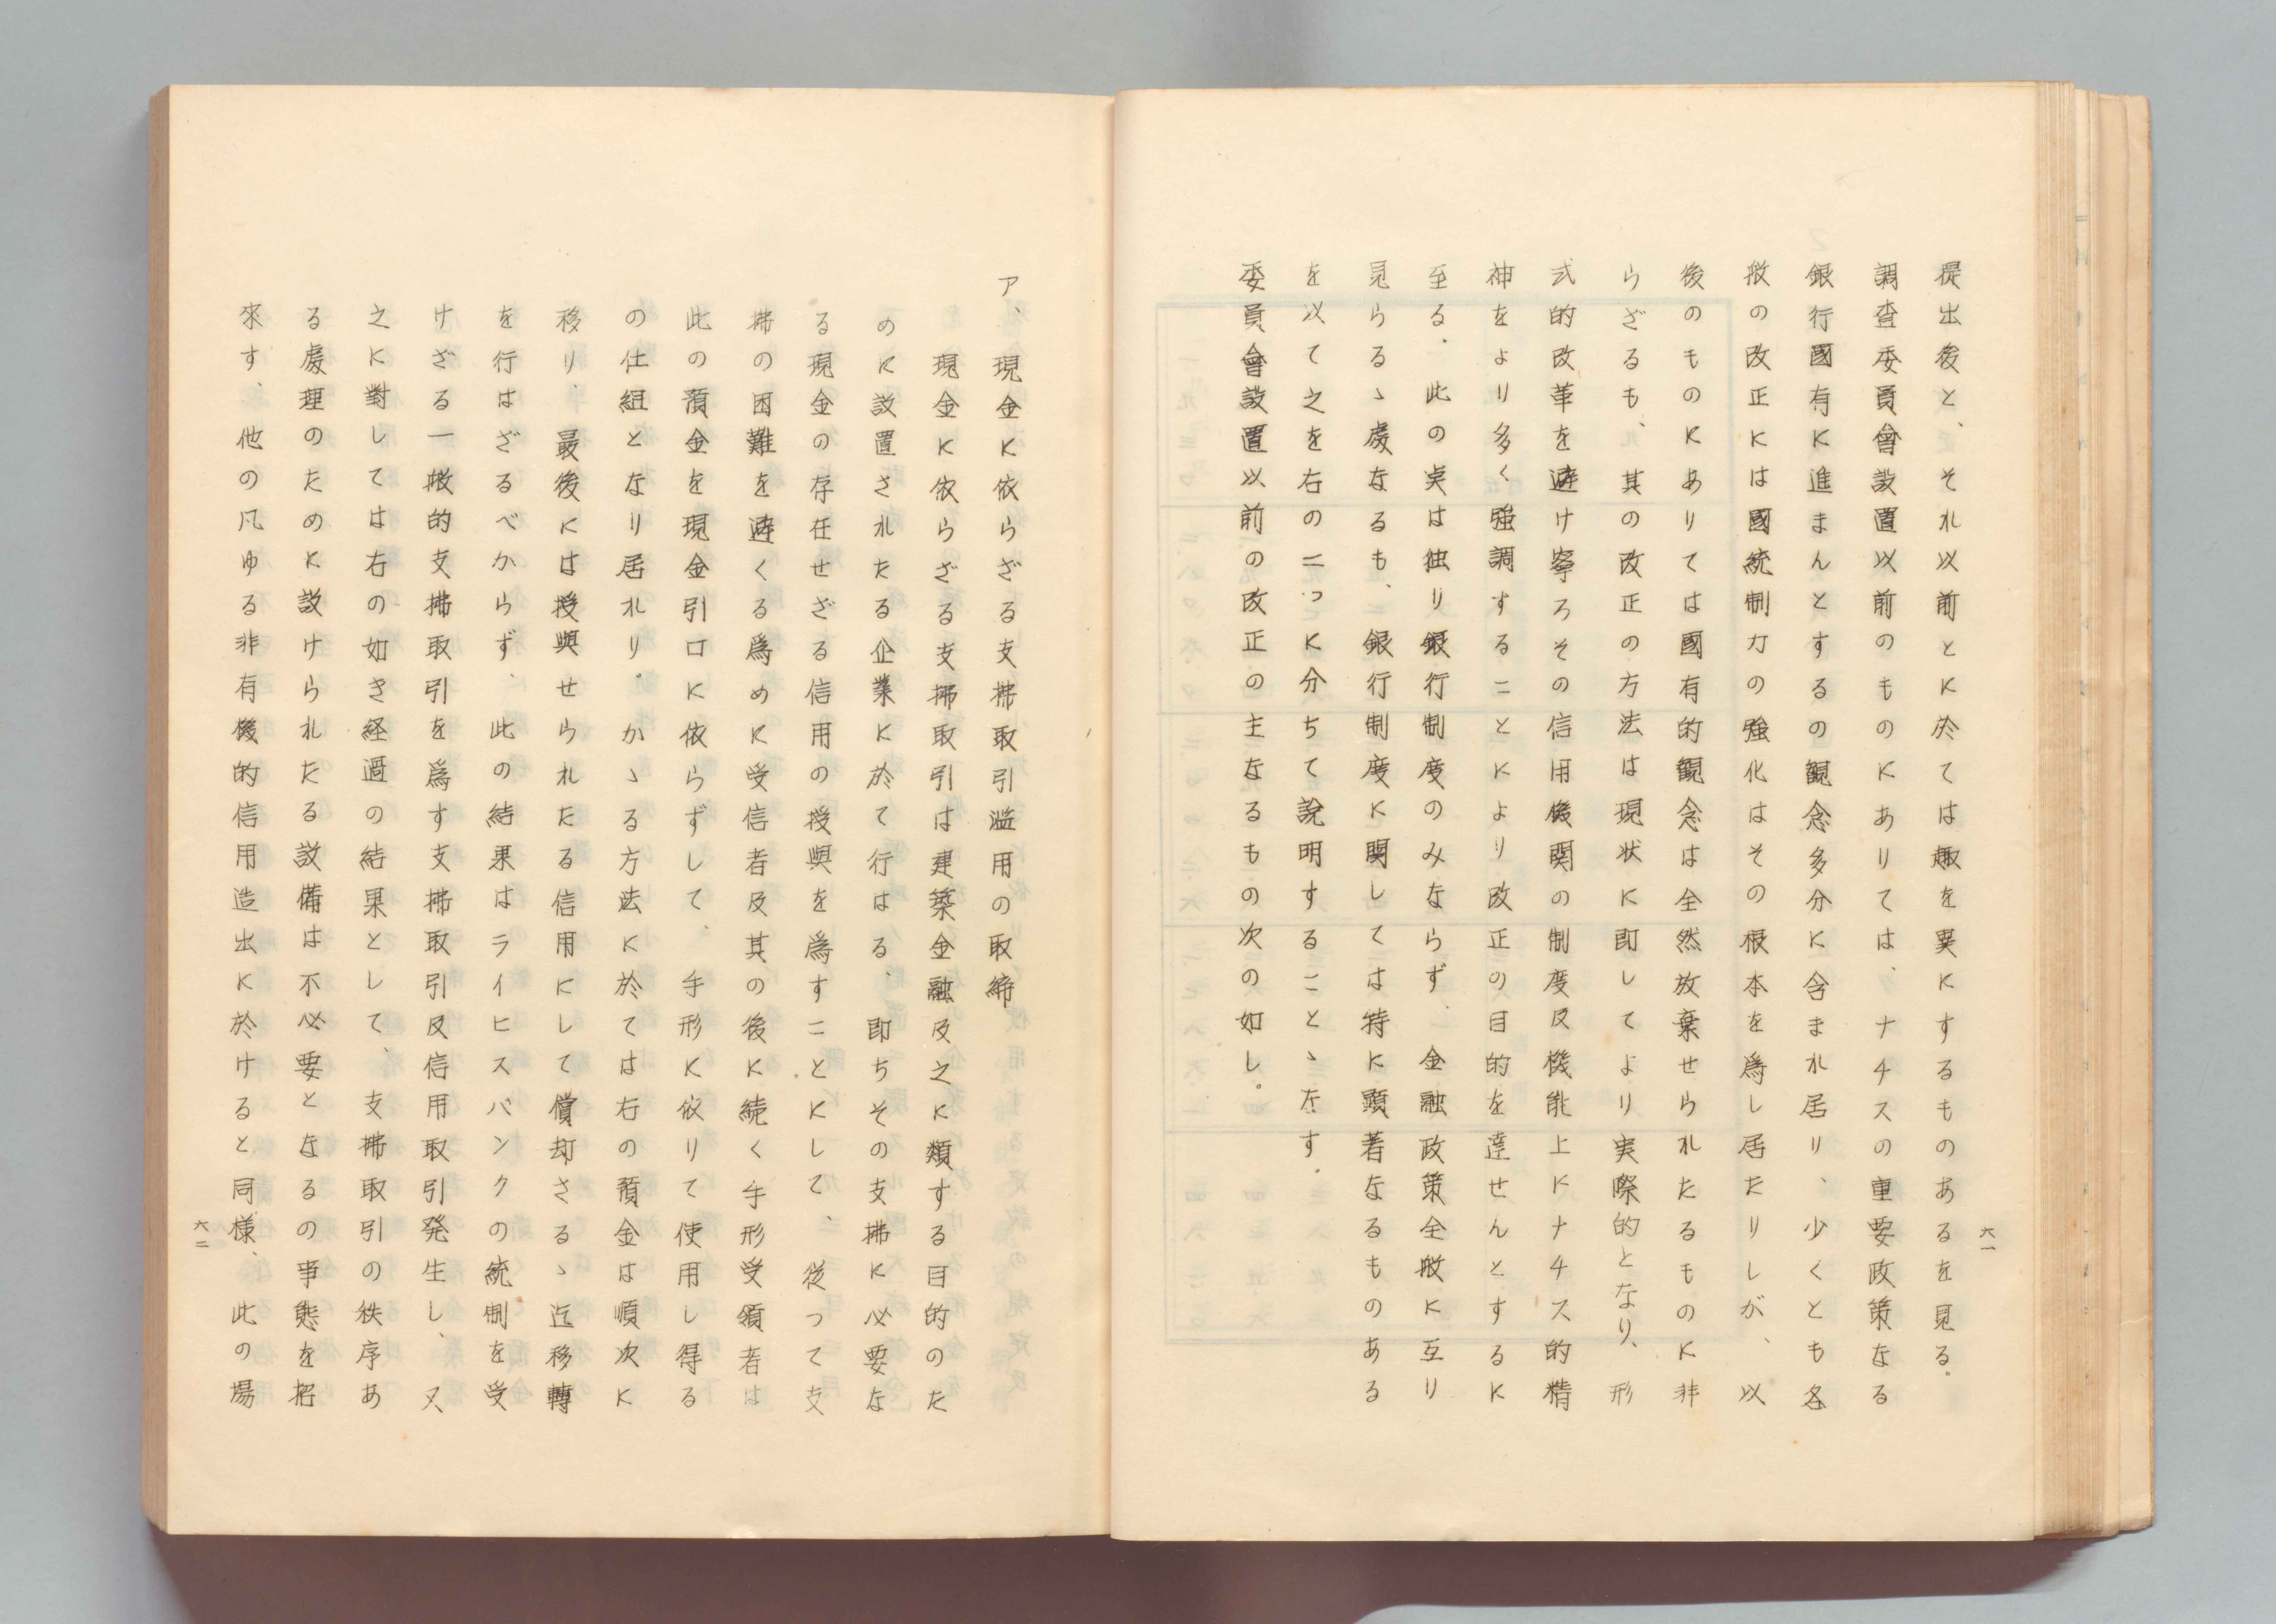 提出後と、それ以前とに於ては趣を異にするものあるを見る。
調査委員會設置以前のものにありては、ナチスの重要政策なる
銀行國有に進まんとするの観念多分に含まれ居り、少くとも各
般の改正には國統制力の強化はその根本を為し居たりしが、以
後のものにありては國有的観念は全然放棄せられたるものに非
らざるも、其の改正の方法は現状に即してより実際的となり、形
式的改革を避け寧ろその信用機関の制度及機能上にナチス的精
神をより多く強調することにより改正の目的を達せんとするに
至る。此の点は独り銀行制度のみならず、金融政策全般に亙り
見らるゝ処なるも、銀行制度に関しては特に顕著なるものある
を以て之を右の二つに分ちて説明することゝなす。
委員會設置以前の改正の主なるもの次の如し。
六一
ア、現金に依らざる支拂取引濫用の取締
現金に依らざる支拂取引は建築金融及之に類する目的のた
めに設置されたる企業に於て行はる、即ちその支拂に必要な
る現金の存在せざる信用の授與を為すことにして、従つて支
拂の困難を避くる為めに受信者及其の後に続く手形受領者は
此の預金を現金引口に依らずして、手形に依りて使用し得る
の仕組となり居れり。かゝる方法に於ては右の預金は順次に
移り、最後には授與せられたる信用にして償却さるゝ迄移轉
を行はざるべからず、此の結果はライヒスバンクの統制を受
けざる一般的支拂取引を為す支拂取引及信用取引発生し、又
之に對しては右の如き経過の結果として、支拂取引の秩序あ
る處理のために設けられたる設備は不必要となるの事態を招
來す、他の凡ゆる非有機的信用造出に於けると同様、此の場
六二